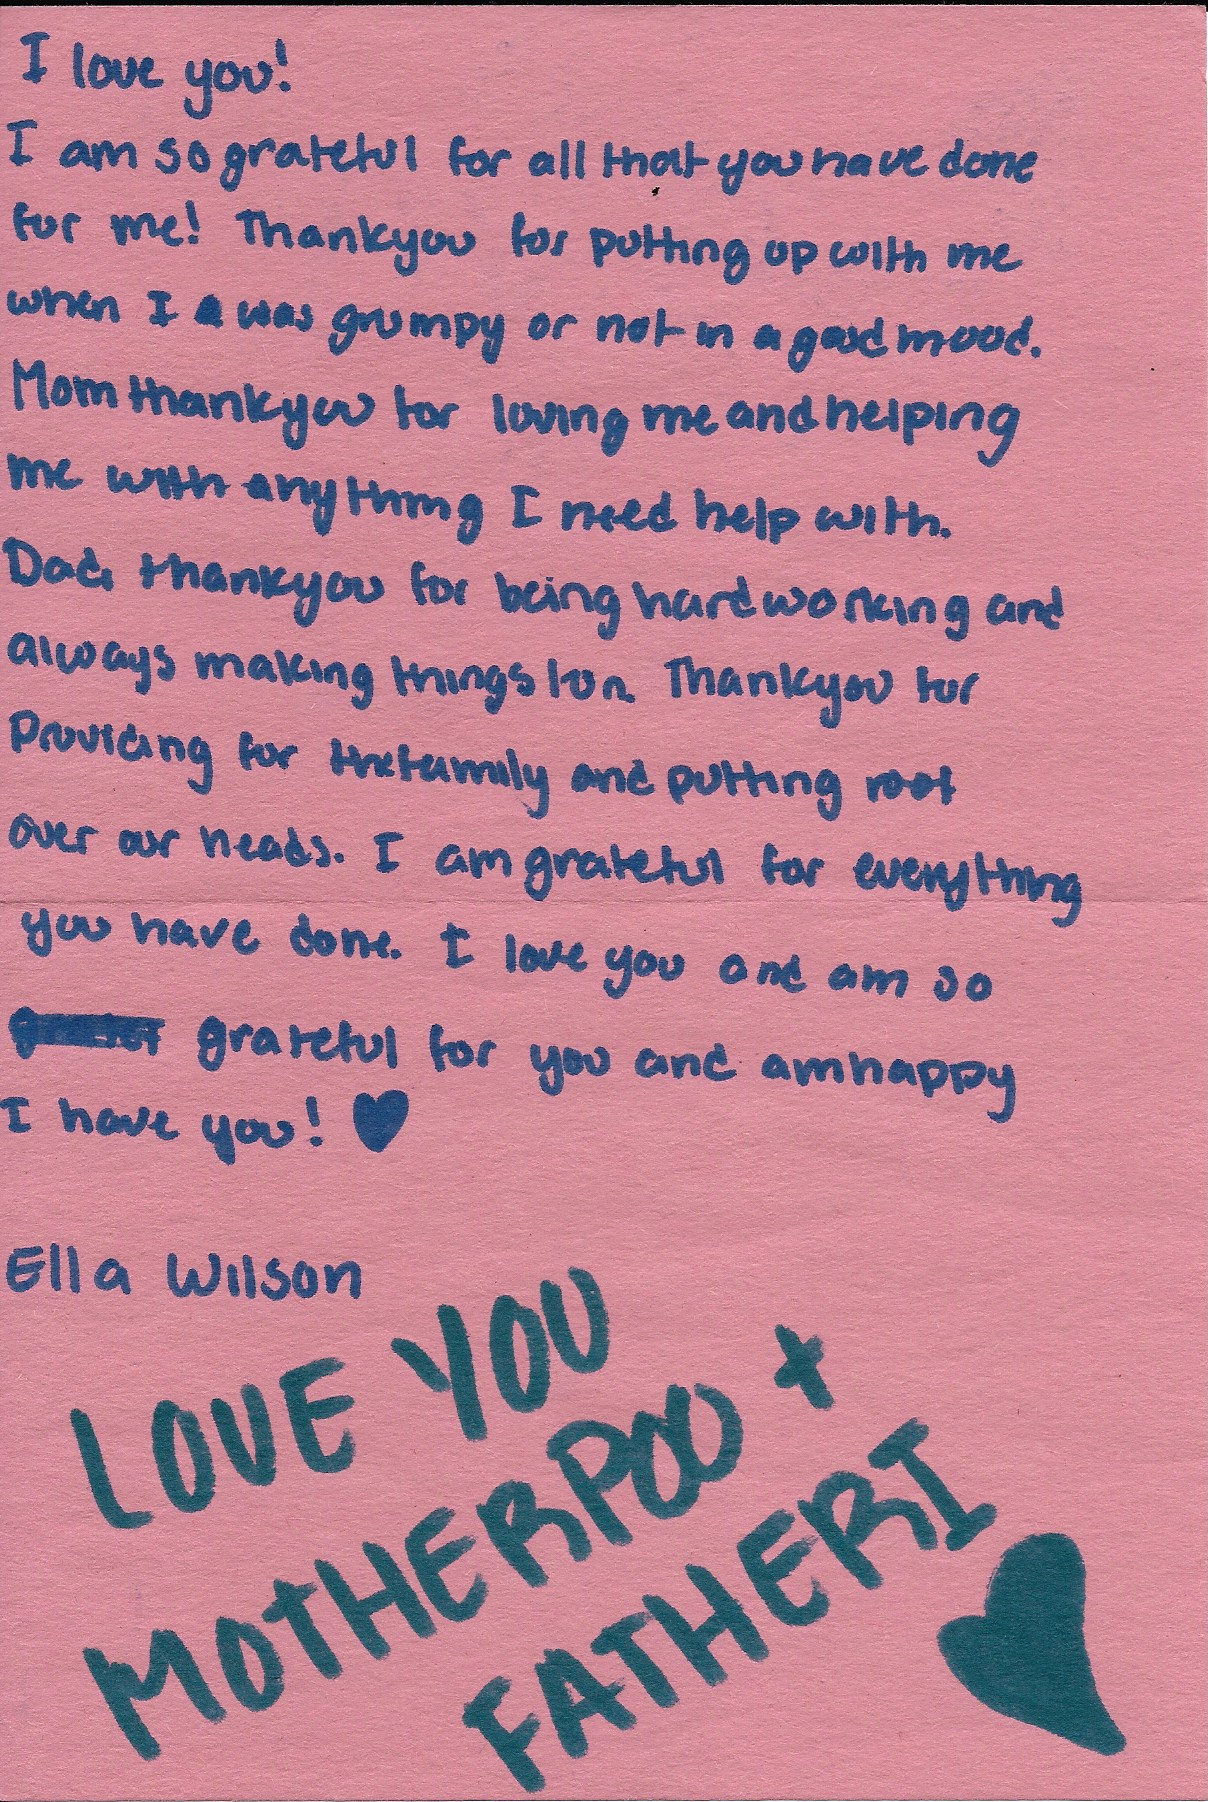 I love you!
I am so grateful for all that you have done
for me! Thankyou for putting up with me
when I was grumpy or not in a good mood.
Mom thankyou for loving me and helping
me with anything I need help with.
Dad, thankyou for being hardworking and
always making things fun. Thankyou for
Providing for the family and putting roof
over our heads. I am grateful for everything
you have done. I love you and am so
grateful for you and am happy
I have you! ♥
Ella Wilson
LOVE YOU
MOTHERPOO +
FATHERI